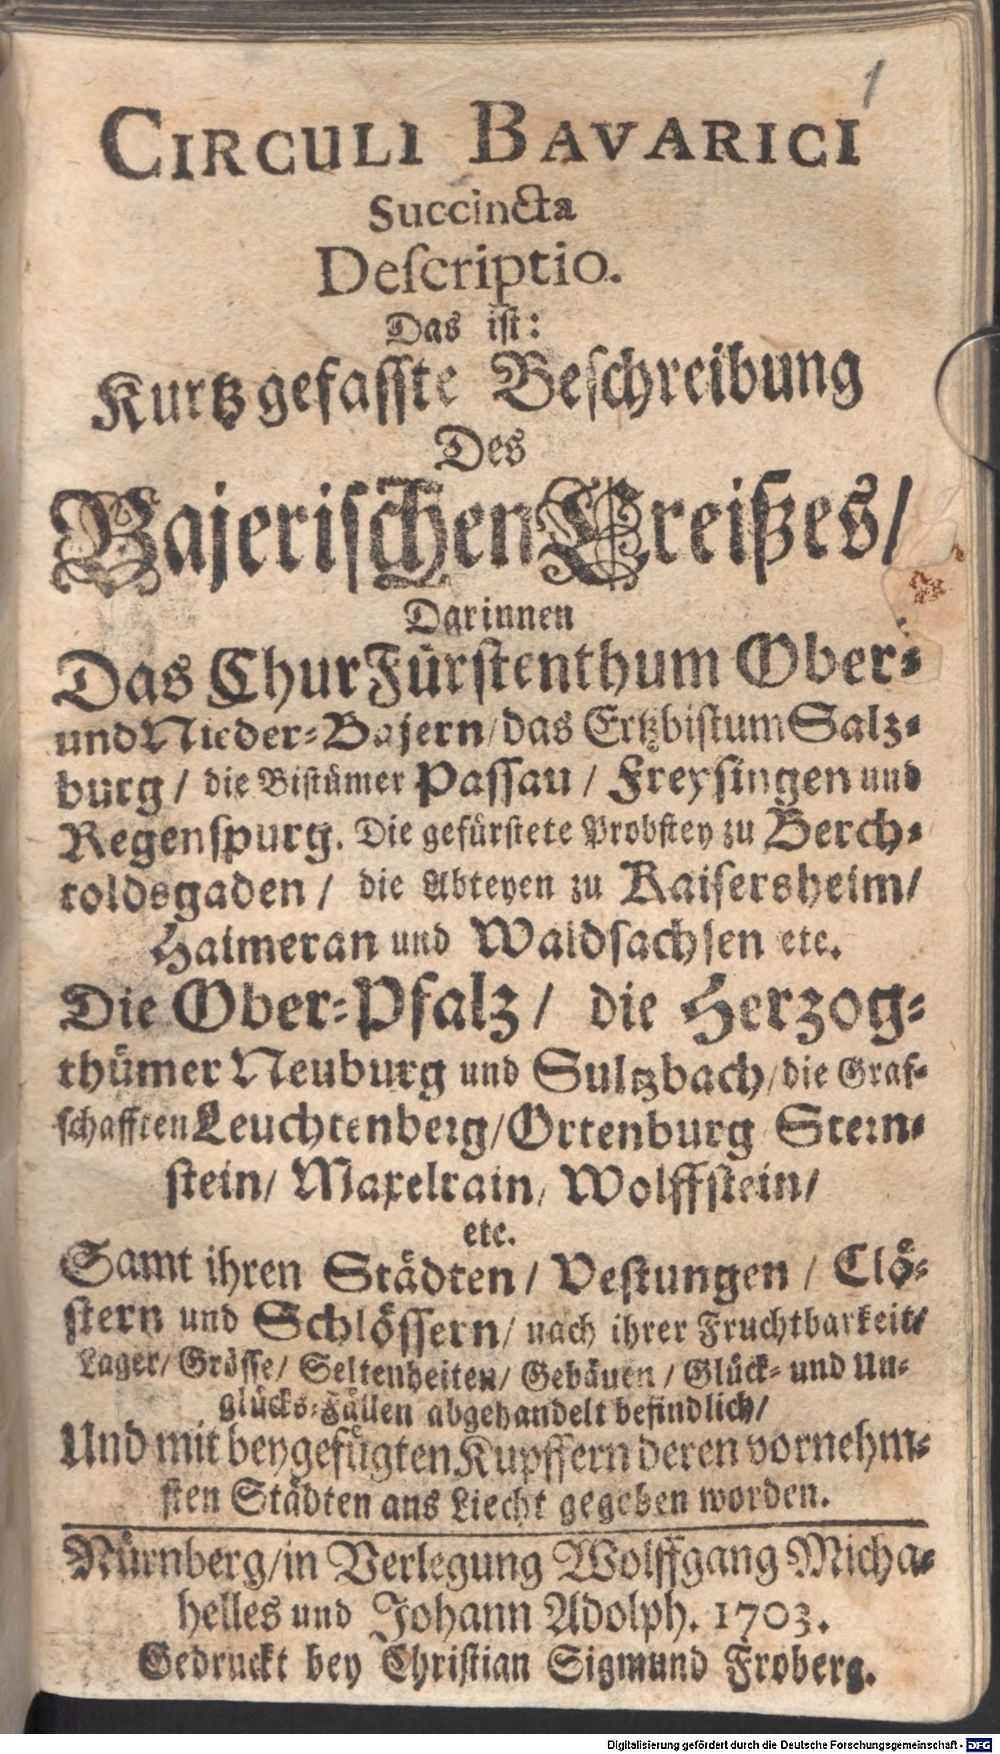 1
CIRCULI BAVARICI
Succincta
Deſcriptio.
Das iſt:
Kurtz gefaſſte Beſchreibung
Des
Bajeriſchen Creißes/
Darinnen
Das ChurFürſtenthum Ober-
und Nieder-Bajern/das Ertzbiſtum Salz-
burg/ die Biſtümer Paſſau/ Freyſingen und
Regenſpurg. Die gefürſtete Probſtey zu Berch-
toldsgaden/ die Abteyen zu Kaiſersheim/
Haimeran und Waldſachſen etc.
Die Ober-Pfalz/ die Herzog-
thümer Neuburg und Sultzbach/die Graf-
ſchafften Leuchtenberg/Ortenburg Stern-
ſtein/ Maxelrain, Wolffſtein/
etc.
Samt ihren Städten/ Veſtungen/ Clö-
ſtern und Schlöſſern/ nach ihrer Fruchtbarkeit/
Lager/ Gröſſe/ Seltenheiten/ Gebäuen/ Glück- und Un-
glücks-Fällen abgehandelt befindlich/
Und mit beygefügten Kupffern deren vornehm-
ſten Städten ans Liecht gegeben worden.
Nürnberg/in Verlegung Wolffgang Micha-
helles und Johann Adolph. 1703.
Gedruckt bey Chriſtian Sigmund Froberg.
Digitalisierung gefördert durch die Deutsche Forschungsgemeinschaft - DFG